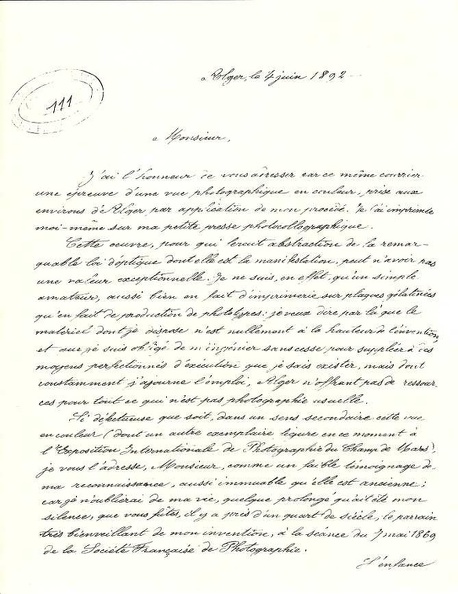 111
Alger, le 4 juin 1892
Monsieur,
J'ai l'honneur de vous adresser par ce même courrier
une épreuve d'une vue photographique en couleur, prise aux
environs d'Alger par application de mon procédé. Je l'ai imprimée
moi-même sur ma petite presse photocollographique.
Cette œuvre, pour qui ferait abstraction de la remar-
quable loi d'optique dont elle est la manifestation, peut n'avoir pas
une valeur exceptionnelle. Je ne suis, en effet, qu'un simple
amateur, aussi bien en fait d'imprimerie sur plaques gélatinées
qu'en fait de production de phototypes: je veux dire par là que le
matériel dont je dispose n'est nullement à la hauteur de l'invention
et que je suis obligé de m'ingénier sans cesse pour suppléer à des
moyens perfectionnés d'exécution que je sais exister, mais dont
constamment j'ajourne l'emploi, Alger n'offrant pas de ressour-
ces pour tout ce qui n'est pas photographie usuelle.
Si défectueuse que soit, dans un sens secondaire cette vue
en couleur (dont un autre exemplaire figure en ce moment à
l'Exposition Internationale de Photographie du Champ de Mars)
je vous l'adresse, Monsieur, comme un faible témoignage de
ma reconnaissance, aussi immuable qu'elle est ancienne;
car je n'oublierai de ma vie, quelque prolongé qu'ait été mon
silence, que vous fûtes, il y a près d'un quart de siècle, le parrain
très bienveillant de mon invention, à la séance du 7 mai 1869
de la Société Française de Photographie.
L'enfance